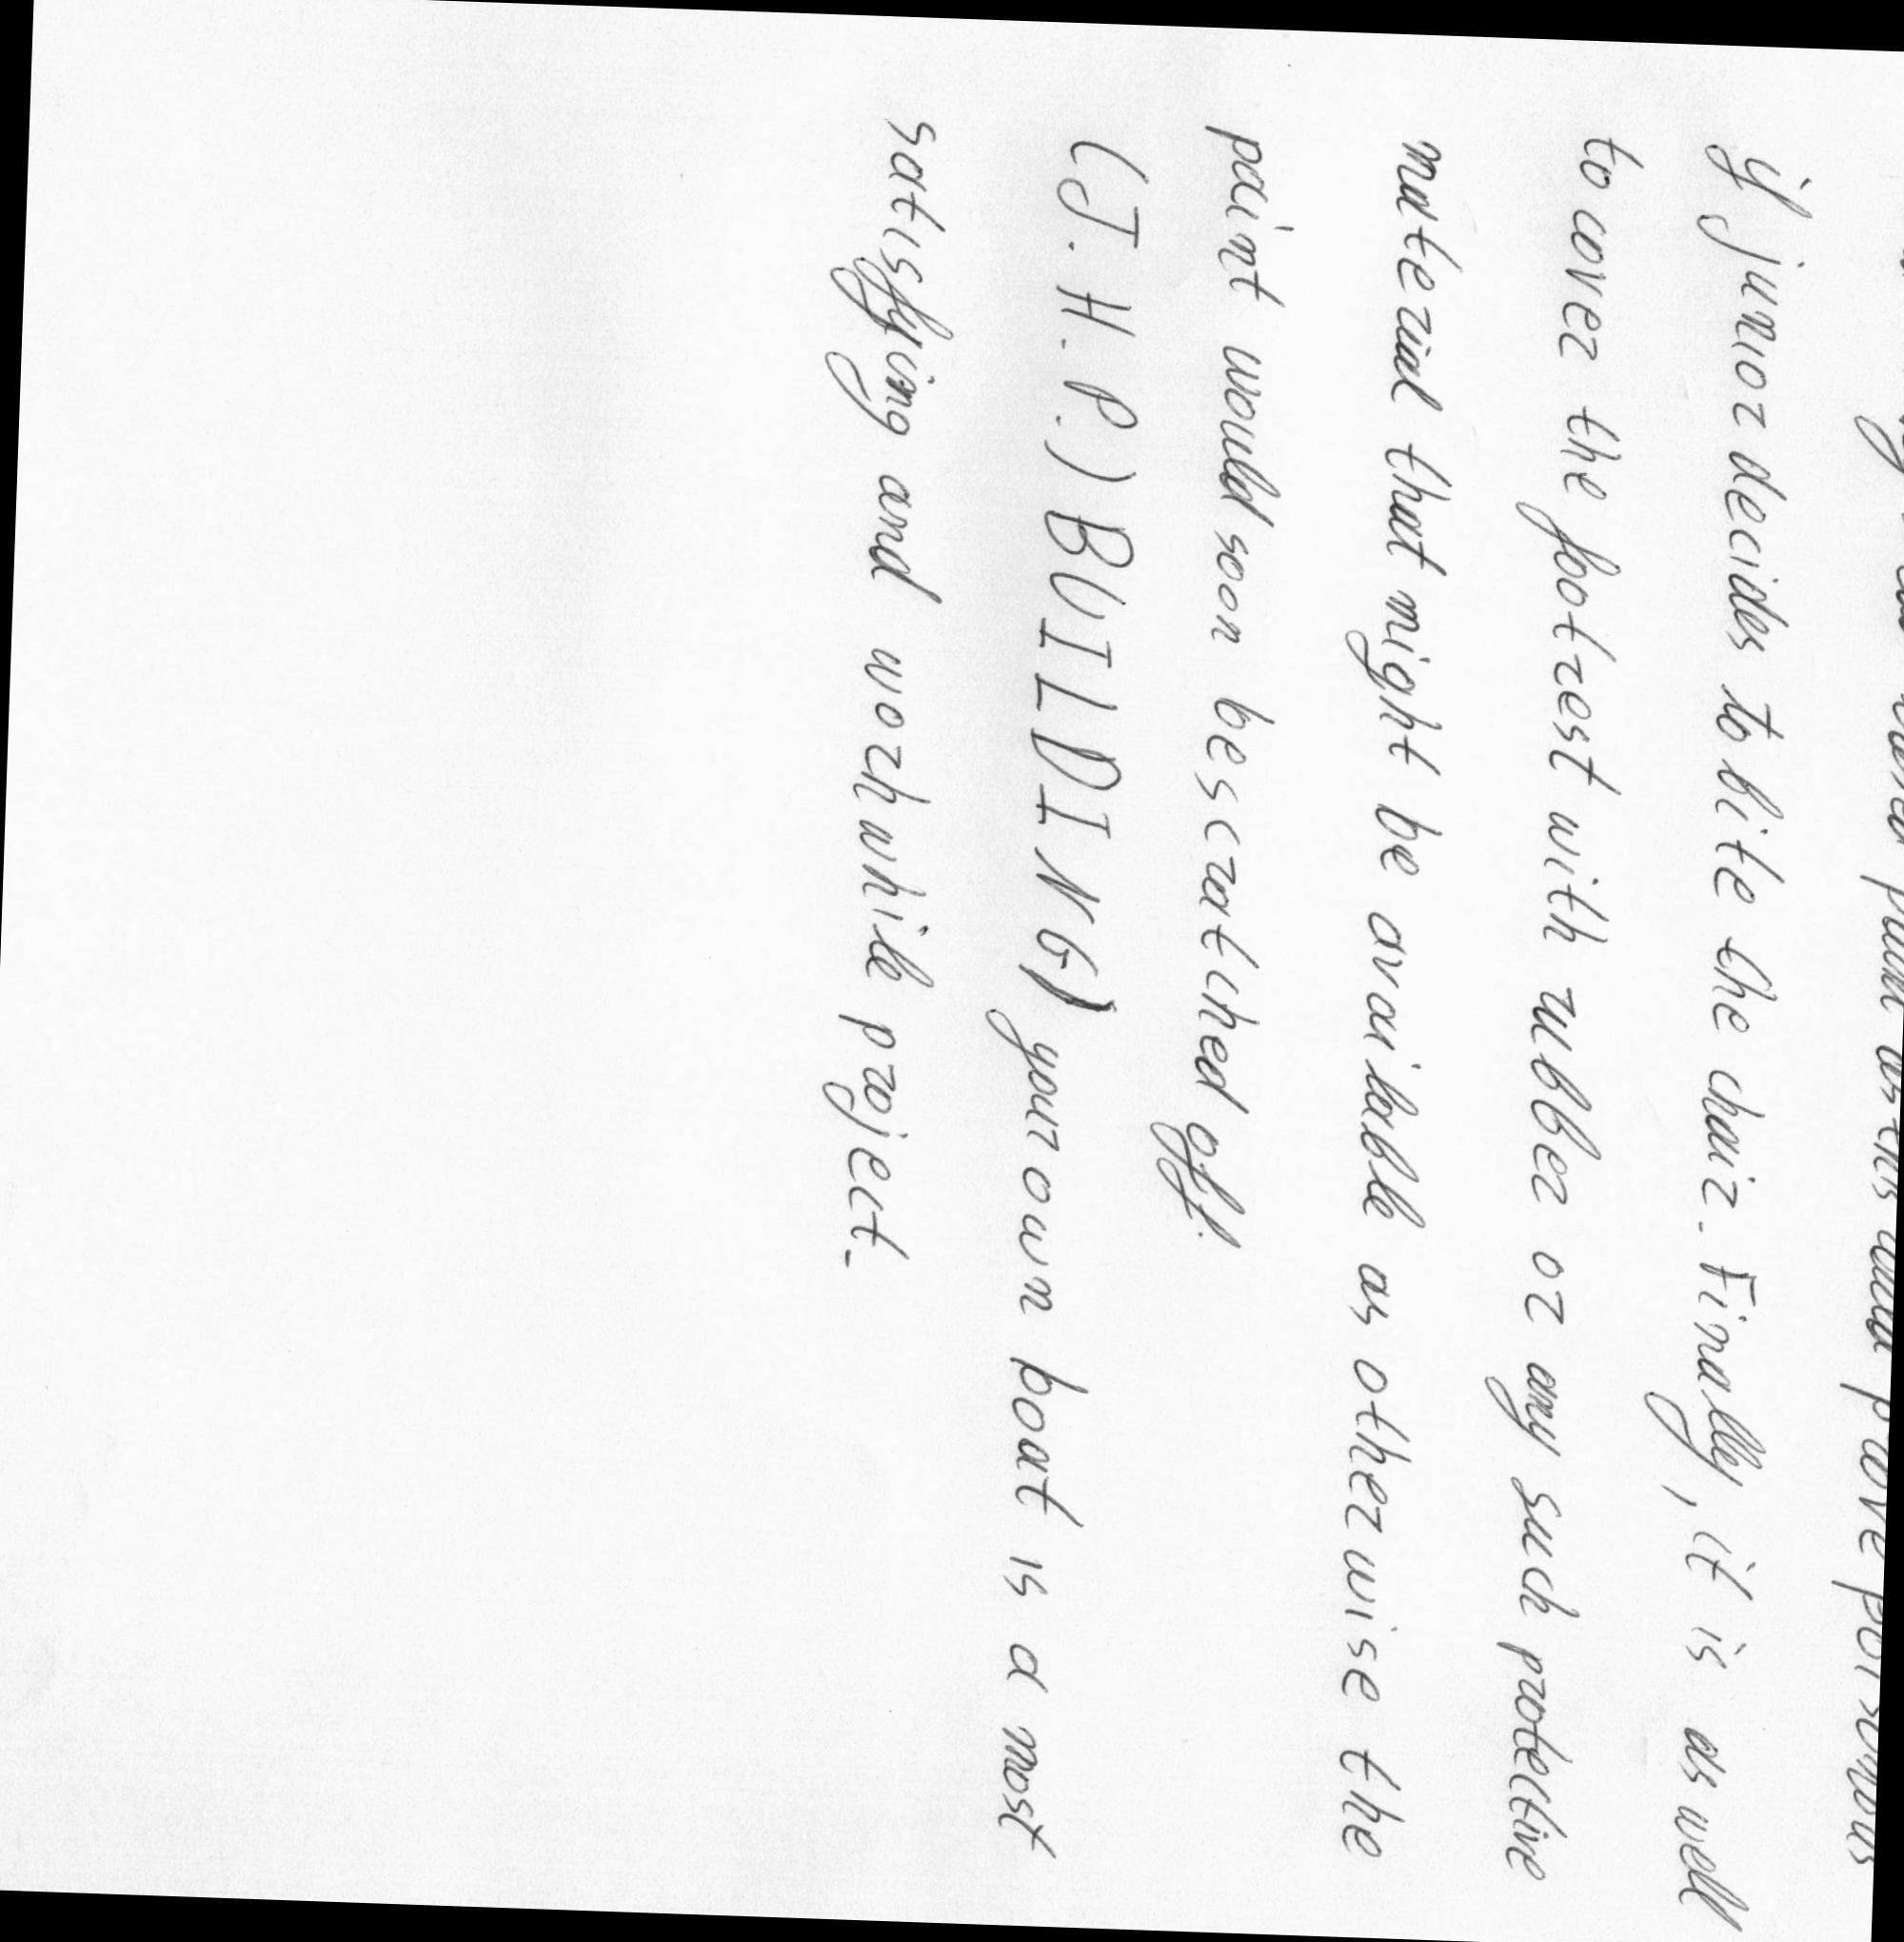 paint as this could prove poisonous
if junior decides to bite the chair. Finally, it is as well
to cover the footrest with rubber or any such protective
material that might be available as otherwise the
paint would soon be scratched off.
(J.H.P.) BUILDING) your own boat is a most
satisffying and worhwhile project.